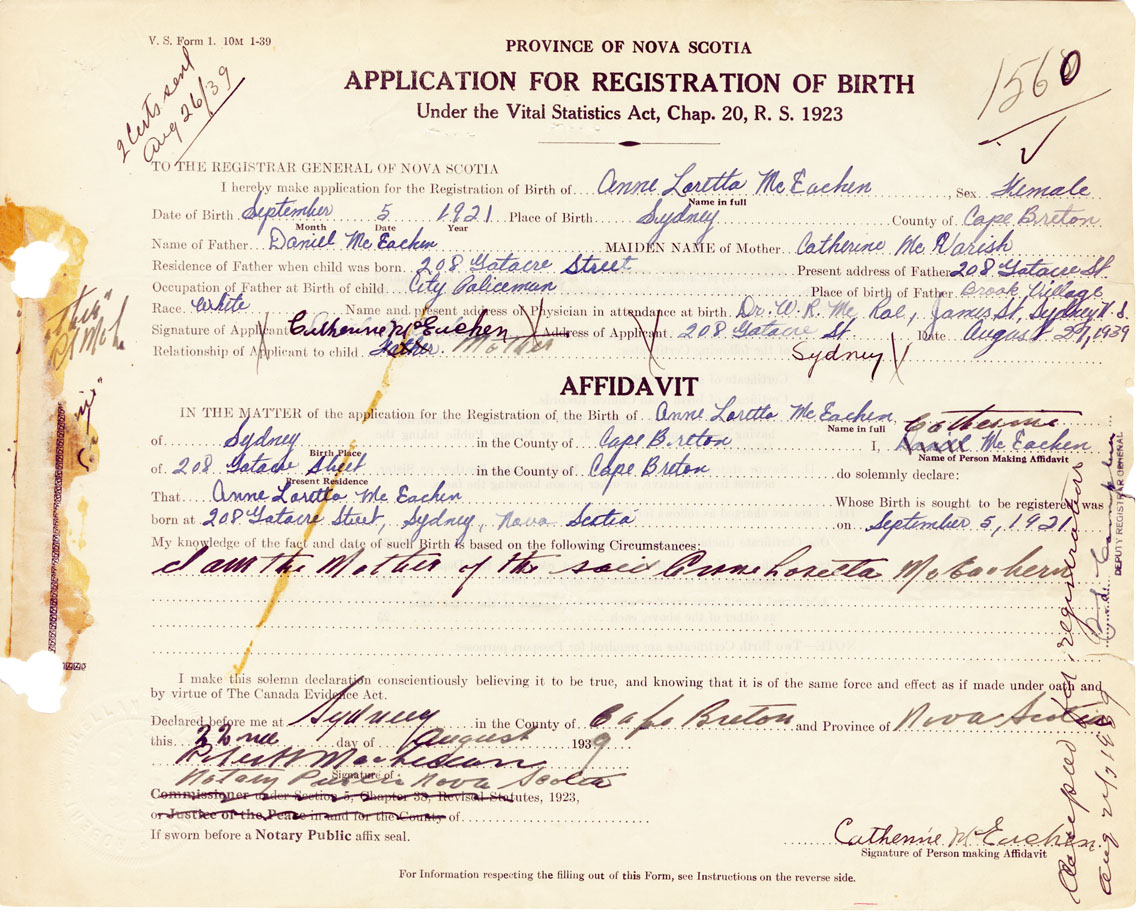 V. S. Form 1. 10M 1-39
2 Certs sent
Aug 26/39
1560
PROVINCE OF NOVA SCOTIA
APPLICATION FOR REGISTRATION OF BIRTH
Under the Vital Statistics Act, Chap. 20, R. S. 1923
TO THE REGISTRAR GENERAL OF NOVA SCOTIA
I hereby make application for the Registration of Birth of Anne Loretta McEachen, Sex Female
Name in full
Date of Birth September 5 1921 Place of Birth Sydney County of Cape Breton
Month Date Year
Name of Father Daniel McEachen MAIDEN NAME of Mother Catherine Mc Varish
Residence of Father when child was born 208 Gatacre Street Present address of Father 208 Gatacre St.
Occupation of Father at Birth of child City Policeman Place of birth of Father Brook Village
Race White Name and present address of Physician in attendance at birth Dr. W. R. Mc Rae, James St, Sydney N. S.
Signature of Applicant Catherine McEachen Address of Applicant 208 Gatacre St. Date August 1939
Relationship of Applicant to child Father Mother Sydney
AFFIDAVIT
IN THE MATTER of the application for the Registration of the Birth of Anne Loretta McEachen
Name in full
Catherine
of Sydney in the County of Cape Breton I, McEachen
Birth Place Name of Person Making Affidavit
of 208 Gatacre Street in the County of Cape Breton do solemnly declare:
Present Residence
That Anne Loretta McEachen Whose Birth is sought to be registered was
born at 208 Gatacre Street, Sydney, Nova Scotia on September 5, 1921
My knowledge of the fact and date of such Birth is based on the following Circumstances:
I am the Mother of the said Anne Loretta McEachern
I make this solemn declaration conscientiously believing it to be true, and knowing that it is of the same force and effect as if made under oath and
by virtue of The Canada Evidence Act.
Declared before me at Sydney in the County of Cape Breton and Province of Nova Scotia
this 22nd day of August 1939
Signature of
Notary Public Nova Scotia
Commissioner under Section 5, Chapter 38, Revised Statutes, 1923,
or Justice of the Peace in and for the County of
If sworn before a Notary Public affix seal.
Catherine McEachen
Signature of Person making Affidavit
For Information respecting the filling out of this Form, see Instructions on the reverse side.
Accepted for registration
Aug 24/1939
DEPUTY REGISTRAR GENERAL